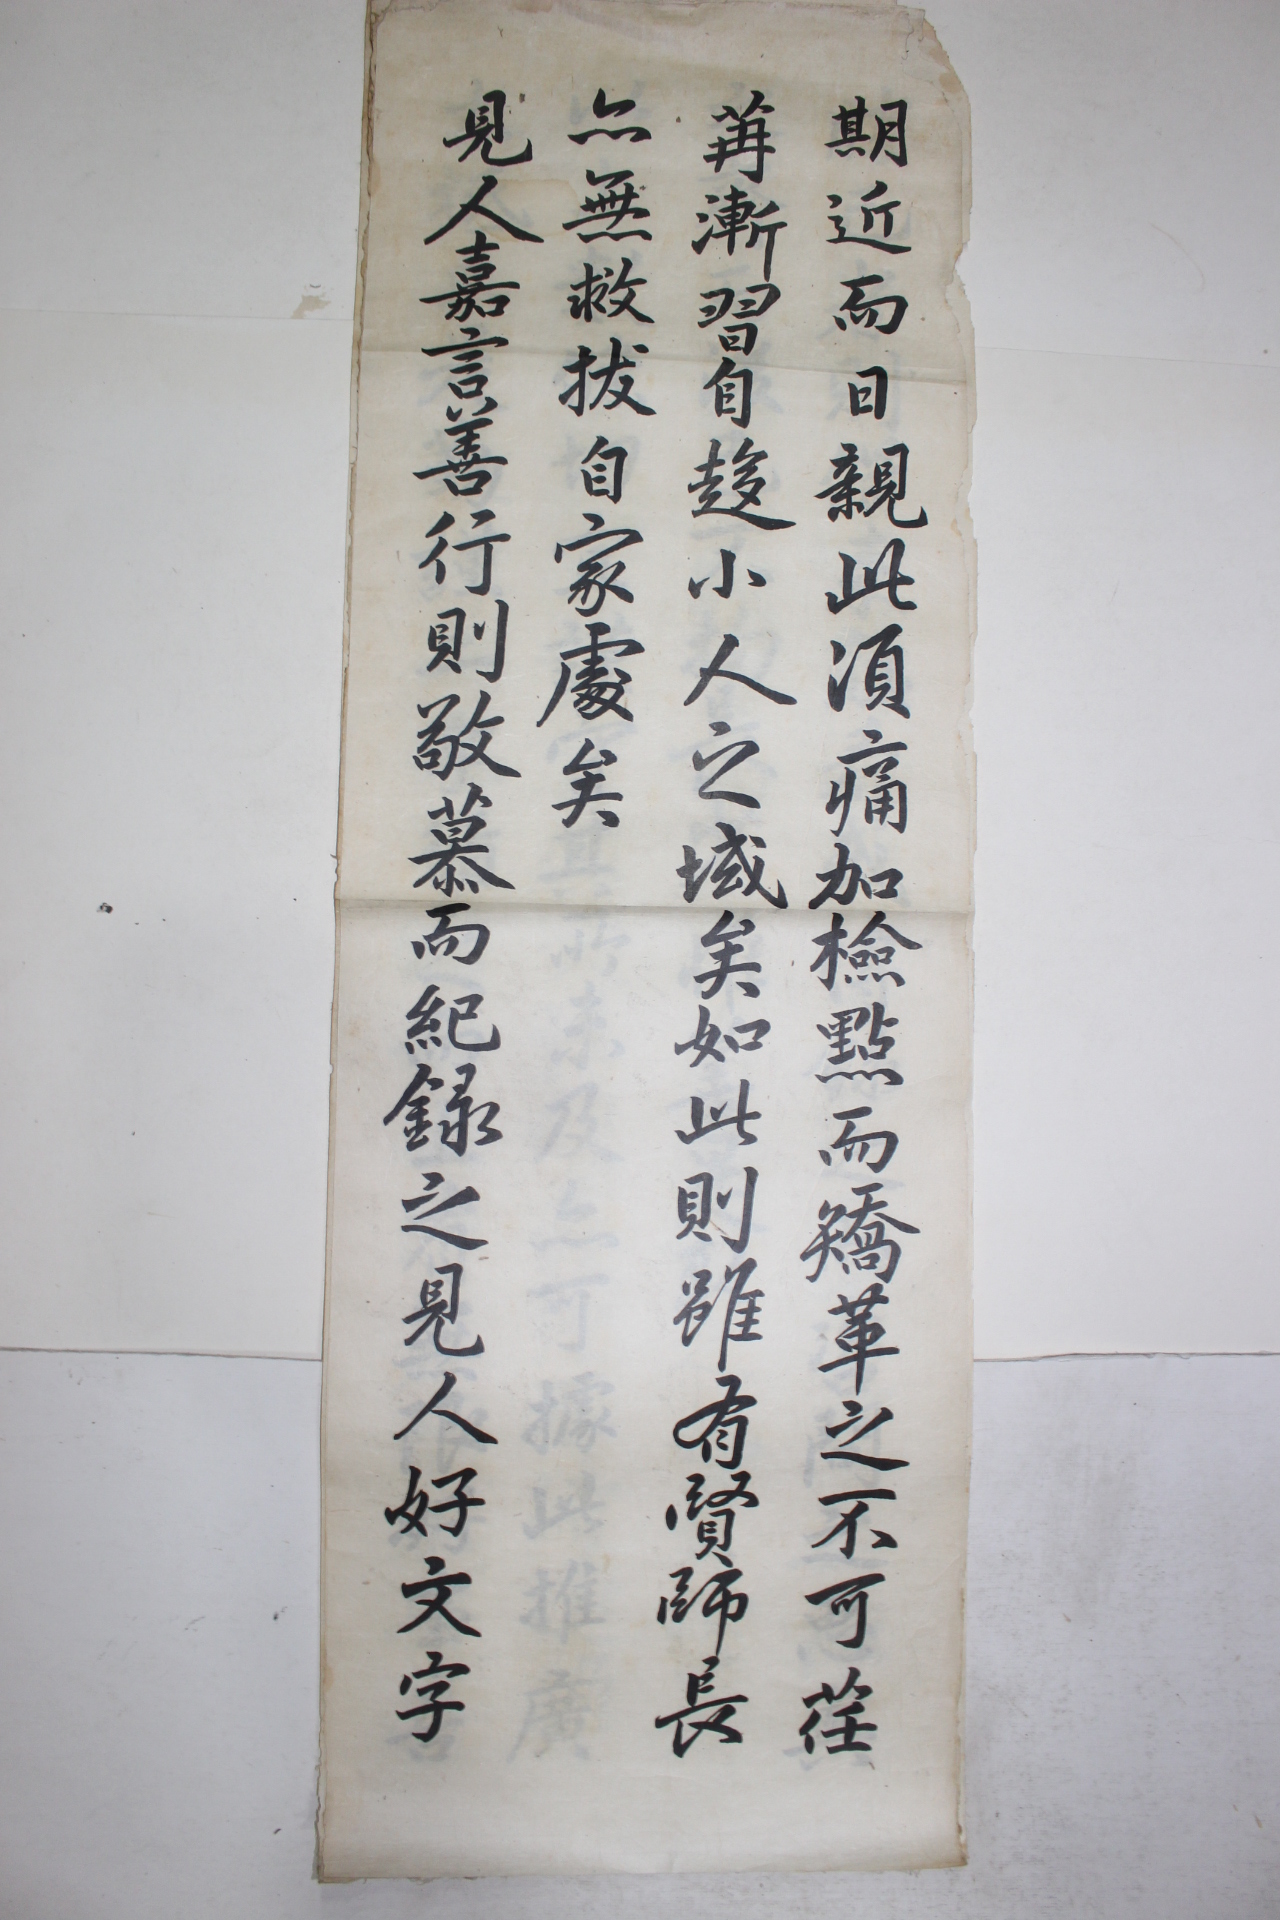 期近而日親此湏痛加檢點而矯革之不可荏
苒漸習自趍小人之域矣如此則雖有賢師長
亦無救拔自家處矣
見人嘉言善行則敬慕而紀錄之見人好文字